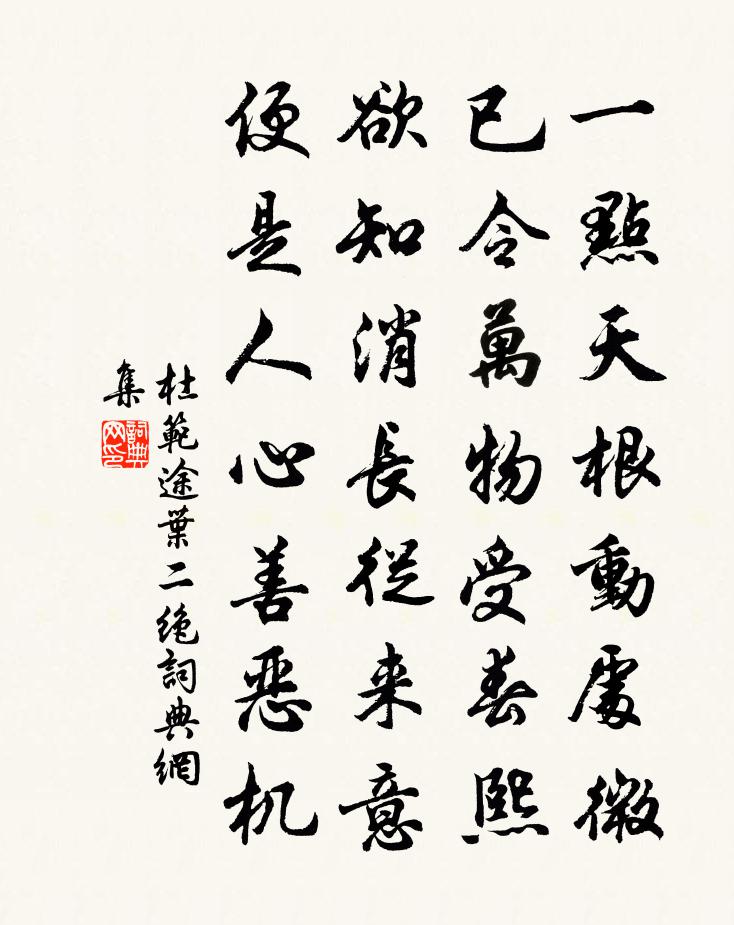 一點天根動處微
已令萬物受春熙
欲知消長從来意
便是人心善惡机
杜範途葉二絶詞典網
集
詞典網印